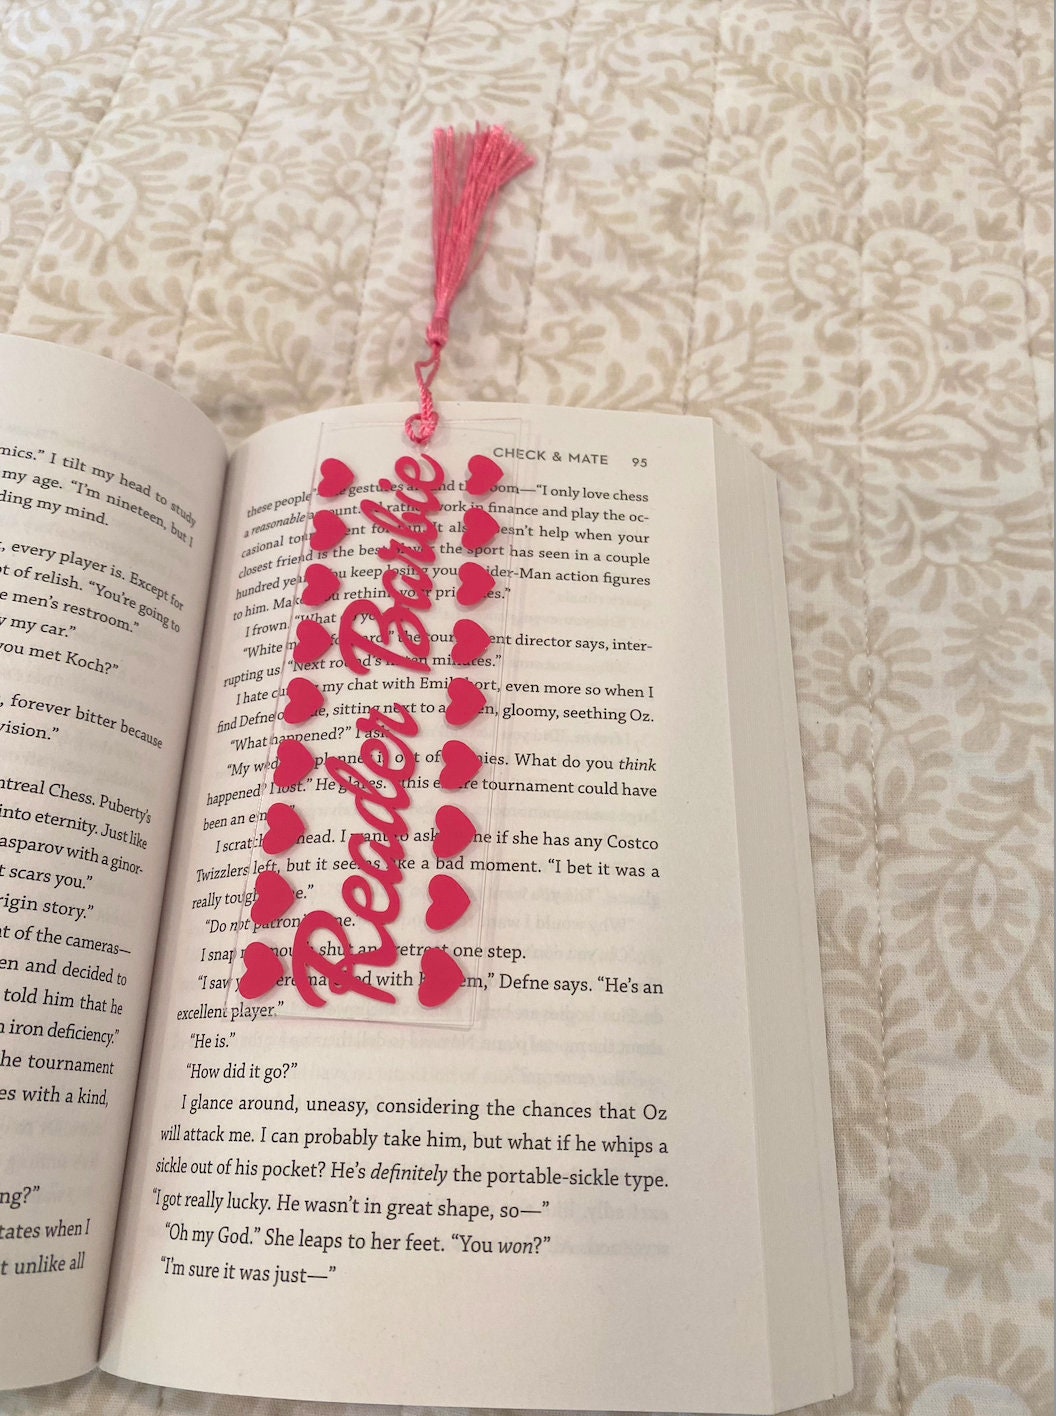 mics.” I tilt my head to study
my age. “I’m nineteen, but I
ding my mind.
, every player is. Except for
ot of relish. “You’re going to
e men’s restroom.”
y my car.”
you met Koch?”
, forever bitter because
vision.”
ntreal Chess. Puberty’s
into eternity. Just like
asparov with a ginor-
t scars you.”
rigin story.”
nt of the cameras—
en and decided to
told him that he
n iron deficiency.”
he tournament
es with a kind,
ng?”
tates when I
t unlike all
CHECK & MATE 95
these people” gestures and th oom—“I only love chess
a reasonable a ount. rath work in finance and play the oc-
casional tou ent fo fun. It als esn’t help when your
closest friend is the best player the sport has seen in a couple
hundred yea u keep losing you ider-Man action figures
to him. Mak u rethink your pri es.”
I frown. “What yo
“White m fo ard,” the tour ent director says, inter-
rupting us. “Next round’s in ten minutes.”
I hate cu my chat with Emil ort, even more so when I
find Defne o e, sitting next to a en, gloomy, seething Oz.
“What happened?” I ask
“My wed planne is out of nies. What do you think
happened? I lost.” He glares. this entire tournament could have
been an em
I scratch head. I want to ask ne if she has any Costco
Twizzlers left, but it seems like a bad moment. “I bet it was a
really tough e.”
“Do not patron me.”
I snap m mouth shut and retreat one step.
“I saw y ere ma d with K em,” Defne says. “He’s an
excellent player.”
“He is.”
“How did it go?”
I glance around, uneasy, considering the chances that Oz
will attack me. I can probably take him, but what if he whips a
sickle out of his pocket? He’s definitely the portable-sickle type.
“I got really lucky. He wasn’t in great shape, so—”
“Oh my God.” She leaps to her feet. “You won?”
“I’m sure it was just—”
Reader Barbie